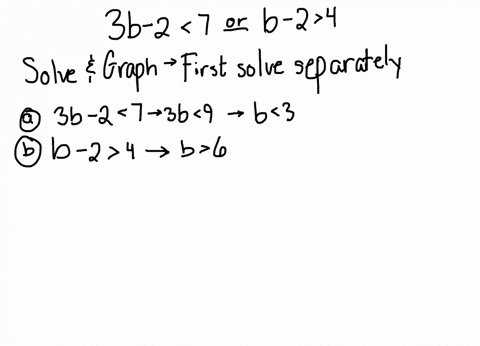 3b-2 < 7 or b-2 > 4
Solve & Graph → First solve separately
ⓐ 3b-2 < 7 → 3b < 9 → b < 3
ⓑ b-2 > 4 → b > 6